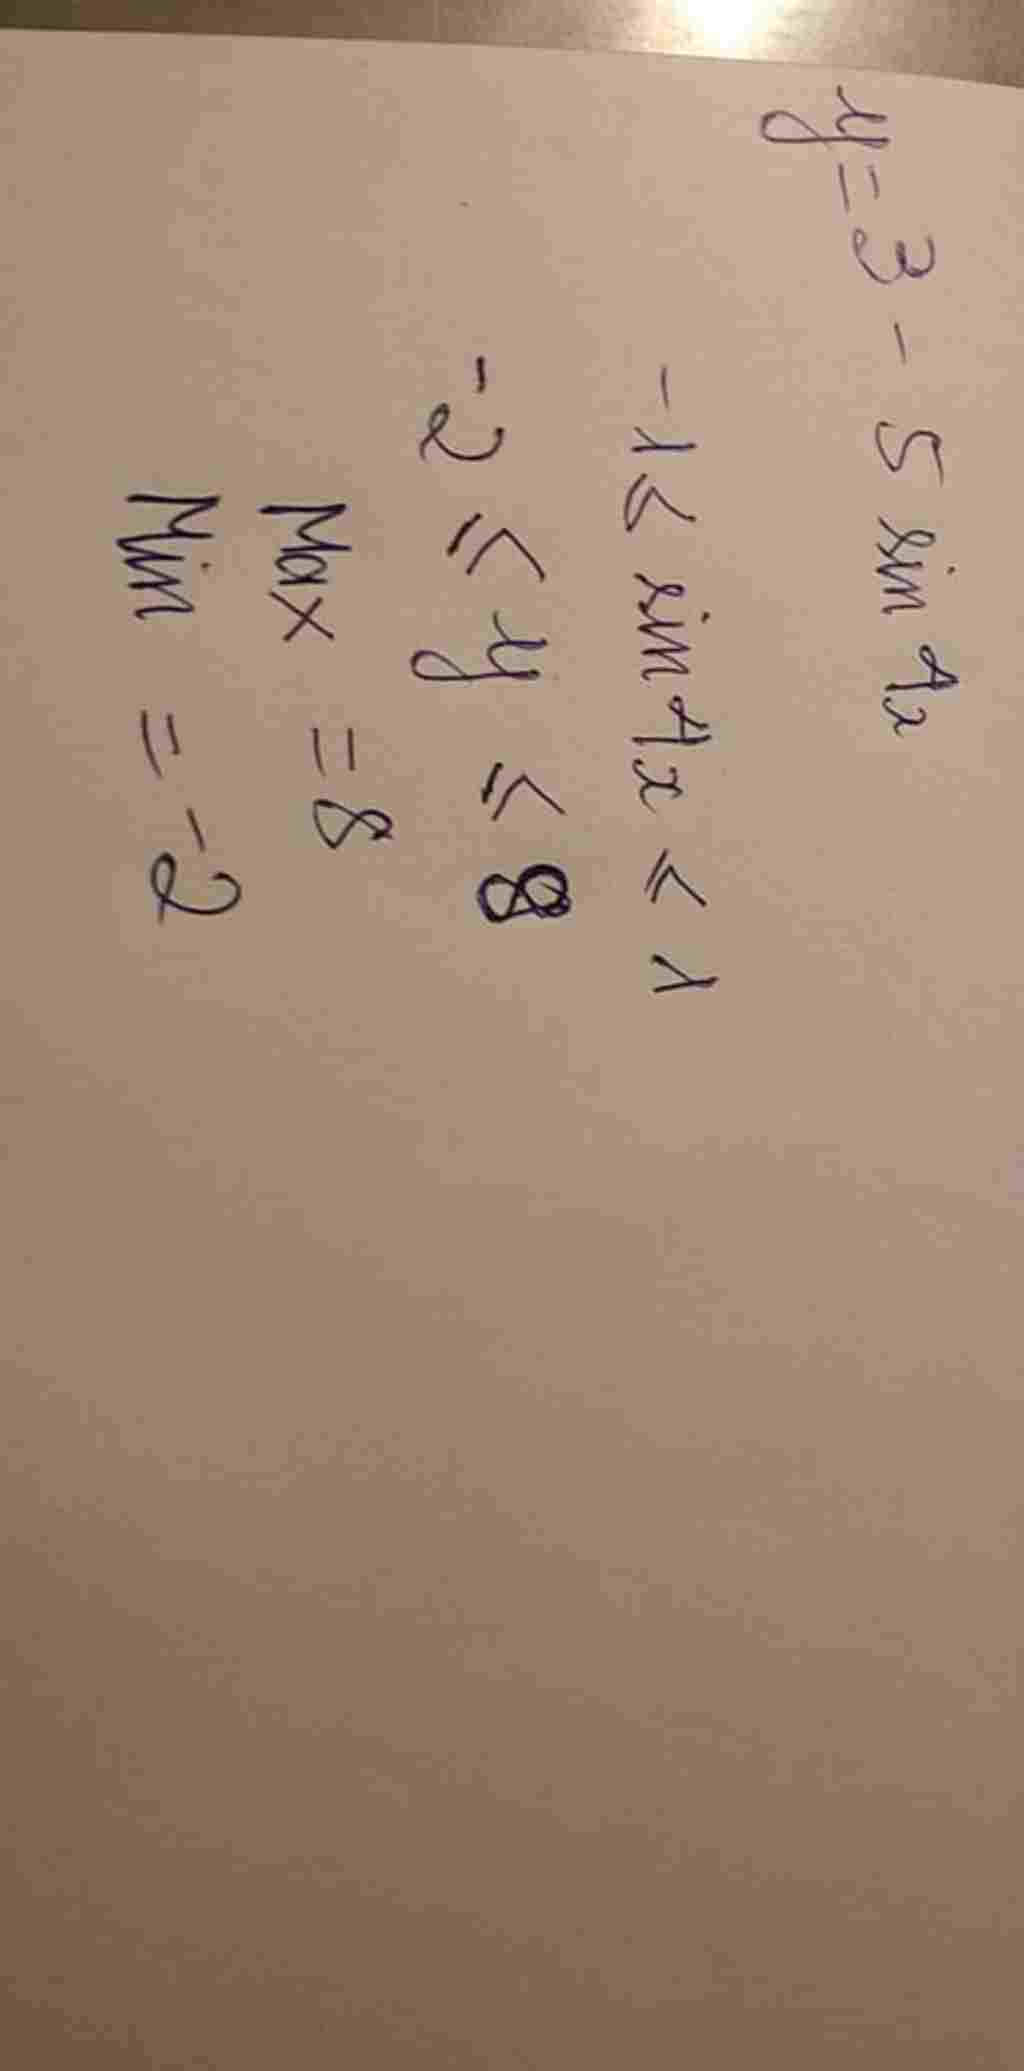 y = 3 - 5 sin 4x
-1 ≤ sin 4x ≤ 1
-2 ≤ y ≤ 8
Max = 8
Min = -2